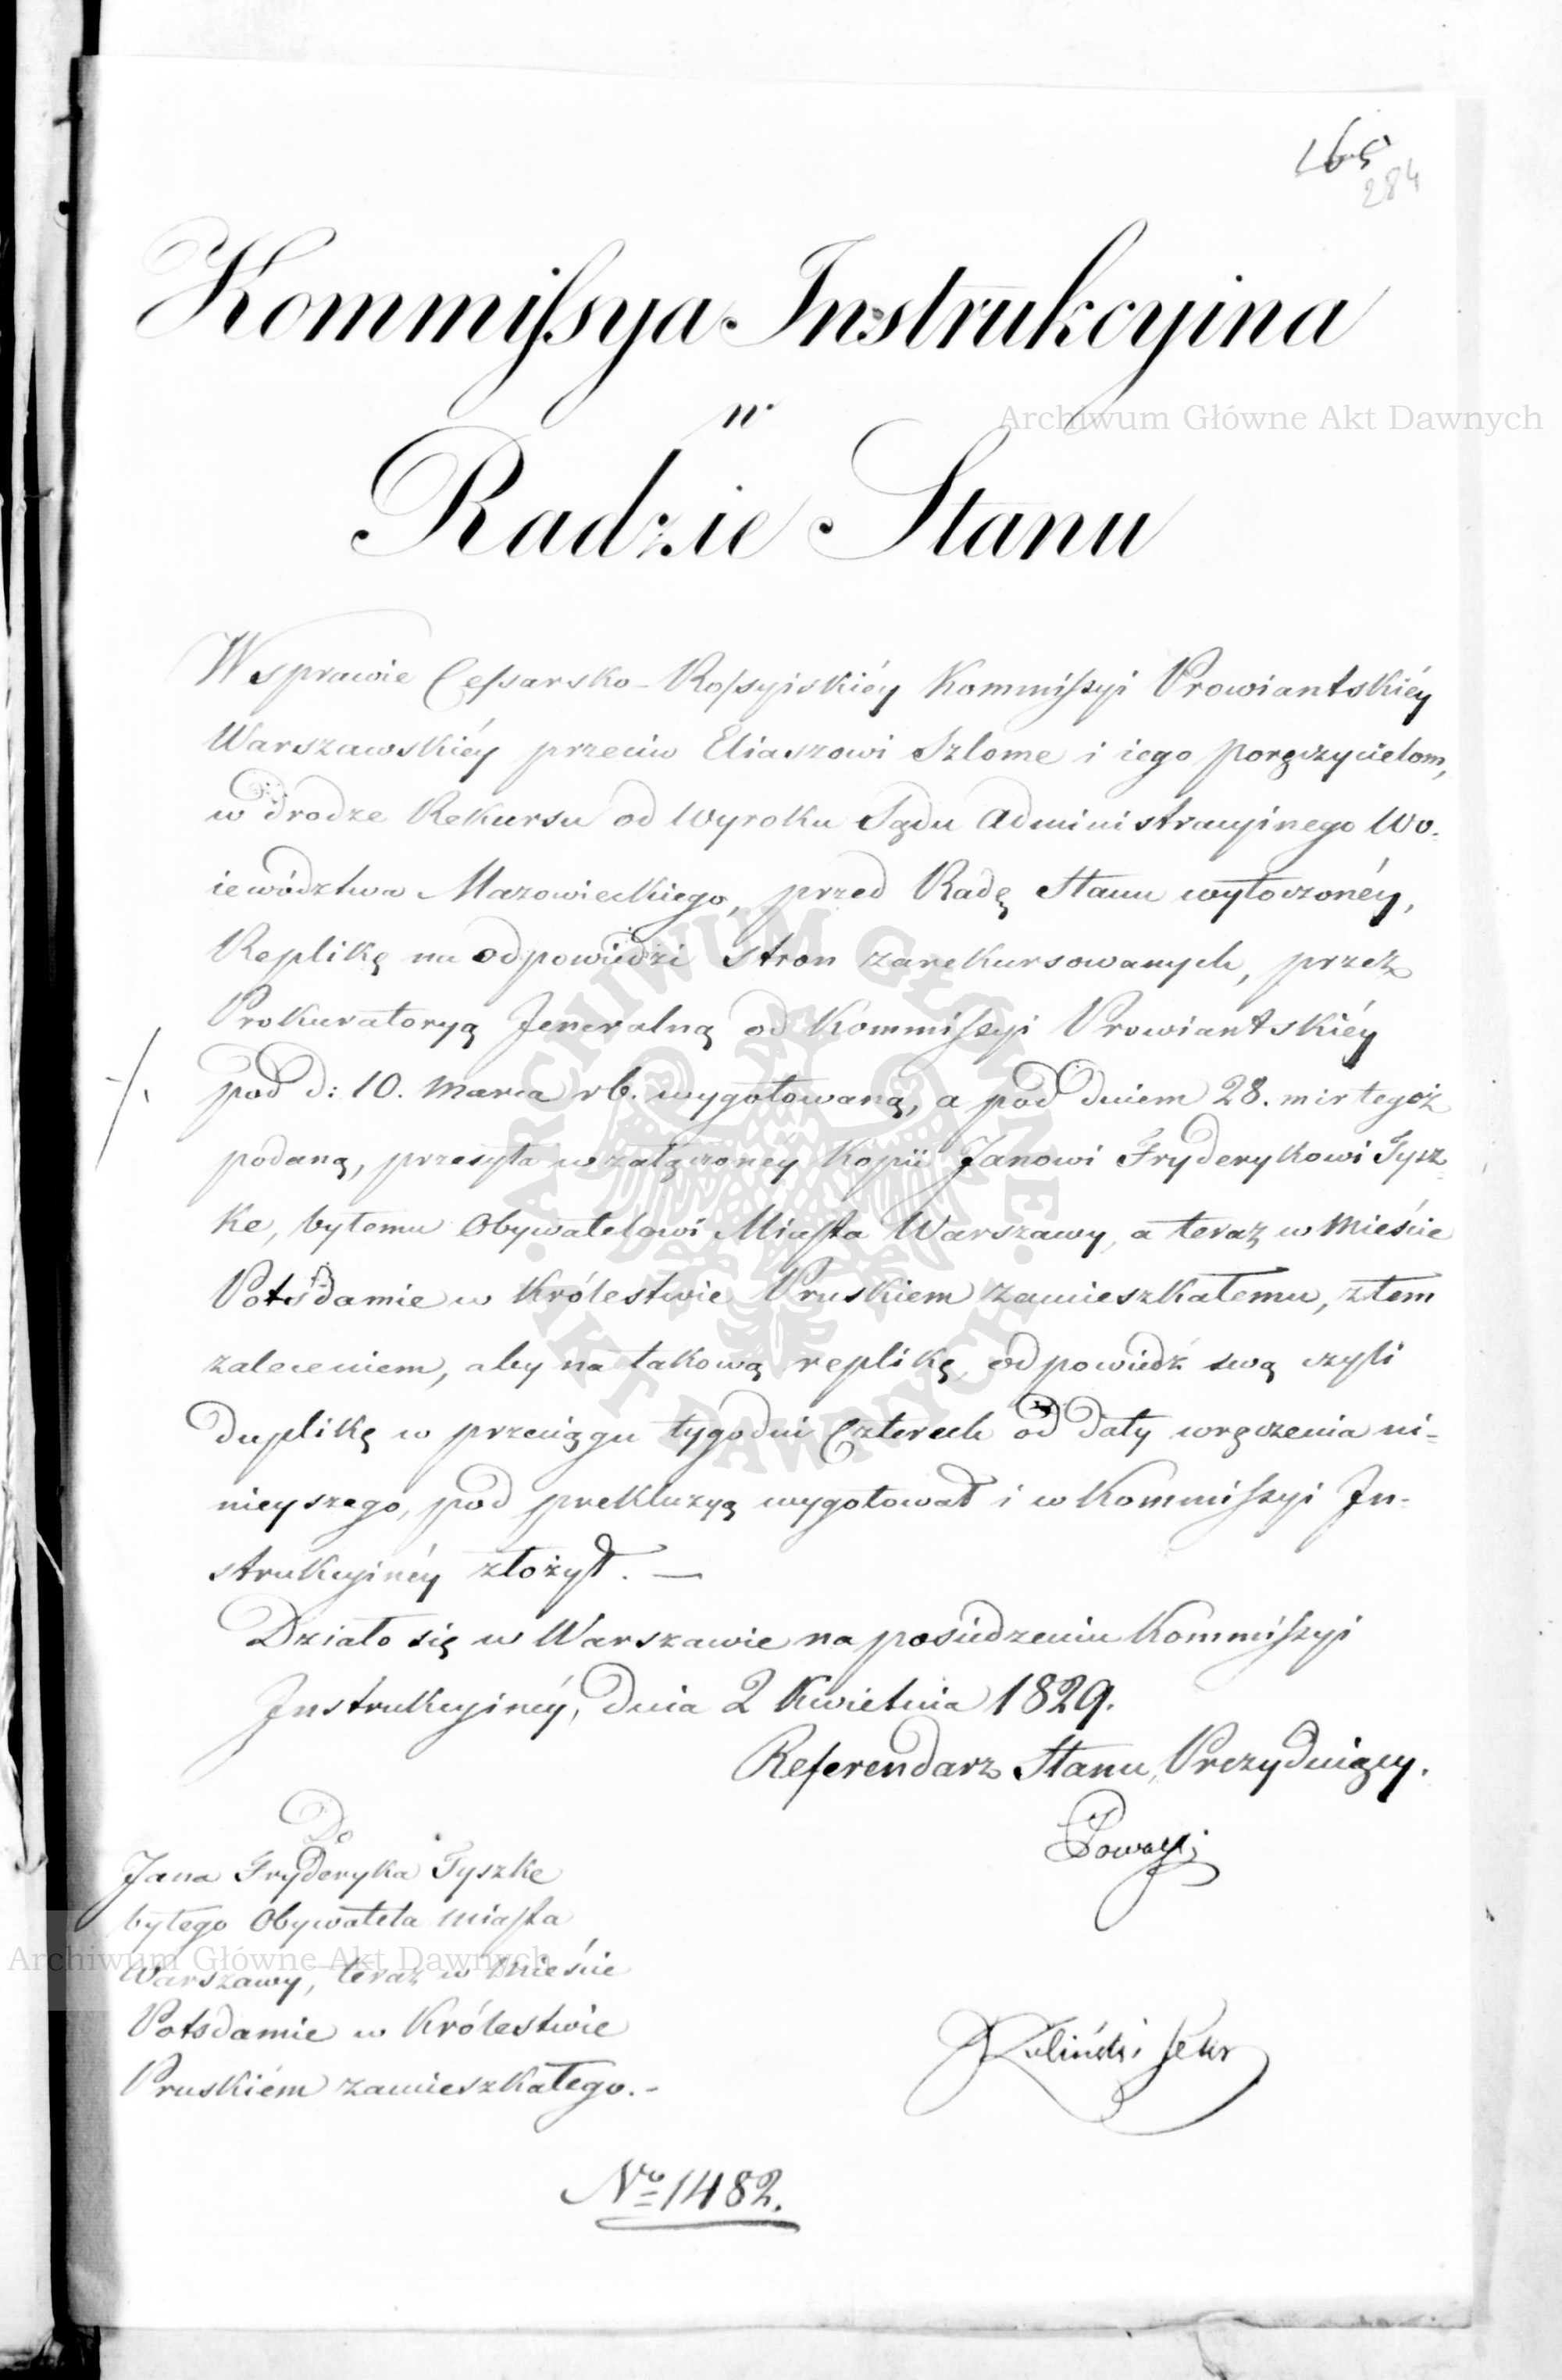 165
284
Kommissya Instrukcyina
w
Radzie Stanu
W sprawie Cessarsko-Rossyiskiéy Kommissyi Prowiantskiéy
Warszawskiéy przeciw Eliaszowi Szlome i iego poręczycielom,
w drodze Rekursu od Wyroku Sądu Administracyinego Wo-
iewództwa Mazowieckiego, przed Radę Stanu wytoczonéy,
Replikę na odpowiedzi stron zarekursowanych, przez
Prokuratoryą Jeneralną od Kommissyi Prowiantskiéy
pod d: 10. Marca rb. wygotowaną, a pod dniem 28. m i r tegoż
podaną, przesyła w załączoney Kopii Janowi Fryderykowi Tysz-
ke, byłemu Obywatelowi Miasta Warszawy, a teraz w Mieście
Potsdamie w Królestwie Pruskiem zamieszkałemu, z tem
zaleceniem, aby na takową replikę, odpowiedź swą czyli
duplikę w przeciągu tygodni Czterech od daty wręczenia ni-
nieyszego, pod prekluzyą wygotował i w Kommissyi In-
strukcyinéy złożył. —
Działo się w Warszawie na posiedzeniu Kommissyi
Instrukcyinéy, dnia 2 Kwietnia 1829.
Referendarz Stanu, Prezyduiący.
Do
Jana Fryderyka Tyszke
byłego Obywatela miasta
Warszawy, teraz w Mieście
Potsdamie w Królestwie
Pruskiém zamieszkałego.-
Sekr
No 1482.
Archiwum Główne Akt Dawnych
ARCHIWUM GŁÓWNE AKT DAWNYCH
Archiwum Główne Akt Dawnych